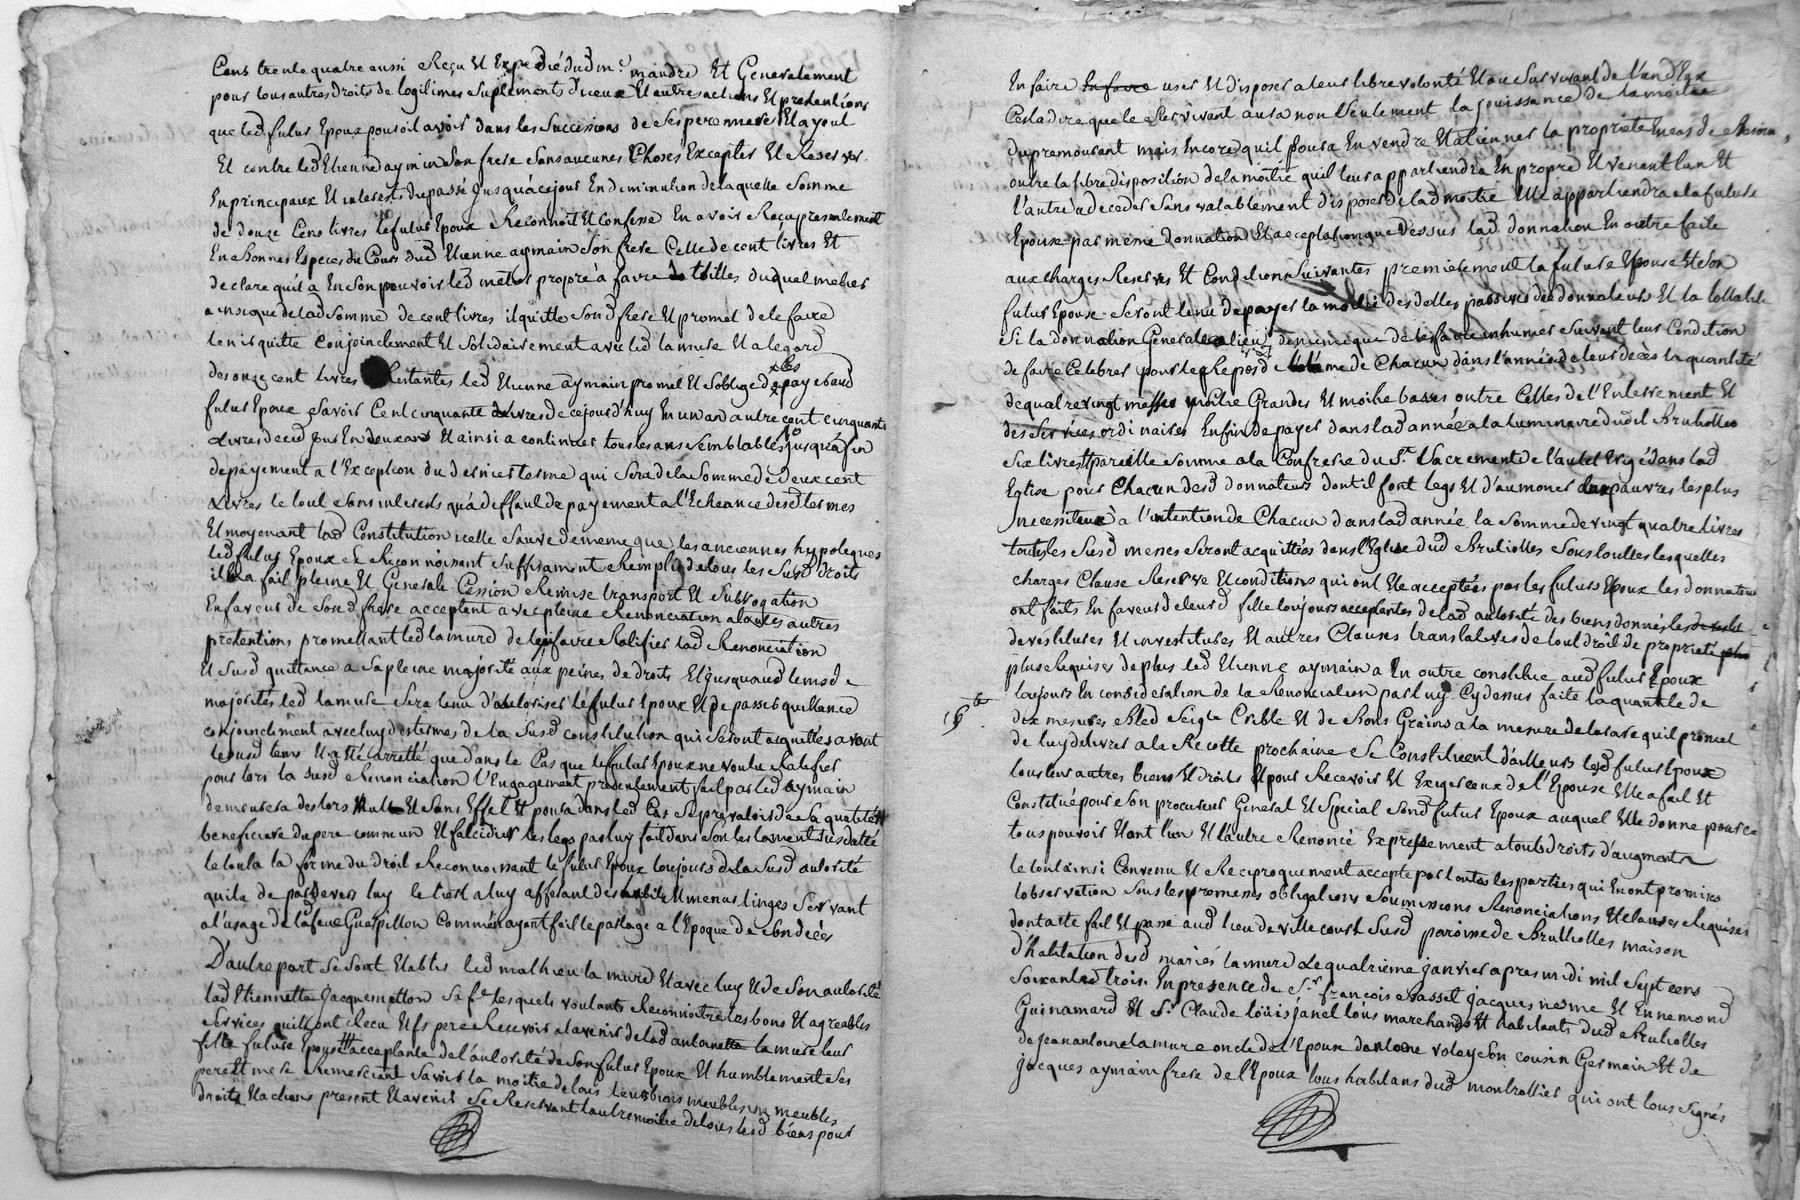 Cens trente quatre aussi Reçu Et Expedié dud me. mandre Et Generalement
pour tous autres droits de logitimes suplements d'iceux Et autres actions Et pretentions
que led futur Epoux pouroit avoir dans les successions de ses pere mere Et ayeul
Et contre led Etienne aymain son frere sans aucunes Choses Excepter Et Reserver
En principaux Et interests du passé Jusquà ce jour En diminution de laquelle somme
de douze Cens livres le futur Epoux Reconnoit Et Confesse En avoir Reçu presentement
En Bonnes Especes du Cours dud Etienne aymain son frere Celle de cent livres Et
declare qu'il à En son pouvoir led metier propre à faire toilles duquel metier
ainsi que de lad somme de cent livres il quitte son d frere Et promet de le faire
tenir quitte conjoinctement Et solidairement avec led lamure Et a legard
des onze cent livres Restantes led Etienne aymain promet Et soblige de les payer aud
futur Epoux savoir Cent cinquante livres de ce jour d'huy En un an autre cent cinquante
Livres de ce d jour En deux ans Et ainsi a continuer tous les ans semblable jour jusqu'à fin
de payement a l'Exception du dernier terme qui sera de la somme de deux cent
Livres le tout sans interests qu'à deffaut de payement a l'Echeance desd termes
Et moyenant lad Constitution icelle sauve de meme que les anciennes hypoteques
led futur Epoux se Reconnoissant suffisament Remply de tous les susd droits
il a fait pleine Et Generale Cession Remise transport Et subrogation
En faveur de son d frere acceptant avec pleine Renonciation a toutes autres
pretentions promettant led lamure de luy faire Ratifier lad Renonciation
Et susd quittance a sa pleine majorité aux peines de droits Et jusqu'aud tems de
majorités led lamure sera tenu d'autoriser le futur Epoux Et de passer quittance
conjoinctement avec luy des termes de la susd constitution qui seront acquittés avant
le susd tems Et a été arretté que dans le Cas que le futur Epoux ne voulu Ratifier
pour lors la susd Renonciation l'Engagement presentement fait par led aymain
demeurera des lors Nulle Et sans Effet Et poura dans led Cas se prevaloir de sa qualité
beneficiere du pere commun Et falcidier les legs par luy fait dans son testament susdatté
le tout a la forme du droit Reconnoissant le futur Epoux toujours de la susd autorité
qu'il a de par devers luy le tiers a luy afferant des habits Et menus linges servant
a l'usage de la feue Guerpillon Comme ayant fait le partage a l'Epoque de son decès
D'autre part se sont Etablis led mathieu lamure Et avec luy Et de son autorité
lad Etiennette Jacquemetton sa fe. lesquels voulants Reconnoitre les bons Et agreables
services quils ont Recu Et Espere Recevoir a l'avenir de lad antoinette lamure leur
fille future Epouse acceptante de l'autorité de son futur Epoux Et humblement ses
pere Et mere Remerciant savoir la moitié de tous leurs biens meubles immeubles
droits Et actions present Et avenir se Reservant l'autre moitié de tous lesd biens pour
En faire En faire user Et disposer a leur libre volonté Et au survivant de l'un d'Eux
Cest a dire que le survivant aura non seulement la jouissance de la moitié
du premourant mais Encore quil poura En vendre Et aliénner la propriété En cas de Besoin
outre la libre disposition de la moitié quil leur appartiendra En propre Et venant l'un Et
l'autre a deceder sans valablement disposer de lad moitié Elle appartiendra a la future
Epouse par meme donnation Et acceptation que dessus lad donnation En outre faite
aux charges Reserves Et Conditions suivantes premierement la future Epouse Et son
futur Epouse seront tenu de payer la moitié des dettes passives des donnateurs Et la totalité
si la donnation Generale a lieu de meme que de les faire inhumer suivant leur Condition
de faire Celebrer pour le Repos de l'âme de Chacun dans l'année de leur decès la quantité
de quatre vingt messes moitié Grandes Et moitié basses outre Celles de l'Enterrement Et
des services ordinaires Enfin de payer dans lad année a la luminaire dudit Brullolles
six livres Et pareille somme a la Confrerie du St. Sacrement de l'autel Erigé dans lad
Eglise pour Chacun desd donnateurs dont il font legs Et d'aumoner aux pauvres les plus
necessiteux à l'intention de Chacun dans lad année la somme de vingt quatre livres
toutes les susd messes seront acquittées dans l'Eglise dud Brullolles sous toutes lesquelles
charges Clause Reserve Et conditions qui ont Eté acceptées par les futurs Epoux les donnateurs
ont faits En faveur de leurd fille toujours acceptantes de lad autorité des biens donnés les devestit
devestitures Et investitures Et autres Clauses translatives de tout droit de propriété plus
plus Requises de plus led Etienne aymain a En outre constitué aud futur Epoux
toujours En consideration de la Renonciation par luy Cy dessus faite la quantité de
dix mesures Bled seigle Crible Et de Bons Grains a la mesure de Lararesle quil promet
de luy delivrer a la Recolte prochaine se Constituent d'ailleurs lesd futur Epoux
tous leurs autres biens Et droits Et pour Recevoir Et Exiger ceux de l'Epouse Elle a fait Et
Constitué pour son procureur General Et special son d futur Epoux auquel Elle donne pour ce
tous pouvoir Etant l'un Et l'autre Renoncé Expressement a tous droits d'augments
le tout ainsi Convenu Et Reciproquement accepté par toutes les parties qui En ont promis
l'observation sous les promesses obligations soumissions Renonciations Et clauses Requises
dont acte fait Et passé aud lieu de villecourt susd paroisse de Brullolles maison
d'habitation desd mariés lamure Le quatrieme janvier apres midi mil sept cens
soixante trois. En presence de Sr. françois Bassel jacques nesme Et Ennemond
Guinamard Et Sr. Claude Loüis janel tous marchands Et habitants dud Brullolles
de jean antoine lamure oncle de l'Epoux d'antoine volay son cousin Germain Et de
jacques aymain frere de l'Epoux tous habitans dud montrottier qui ont tous signés